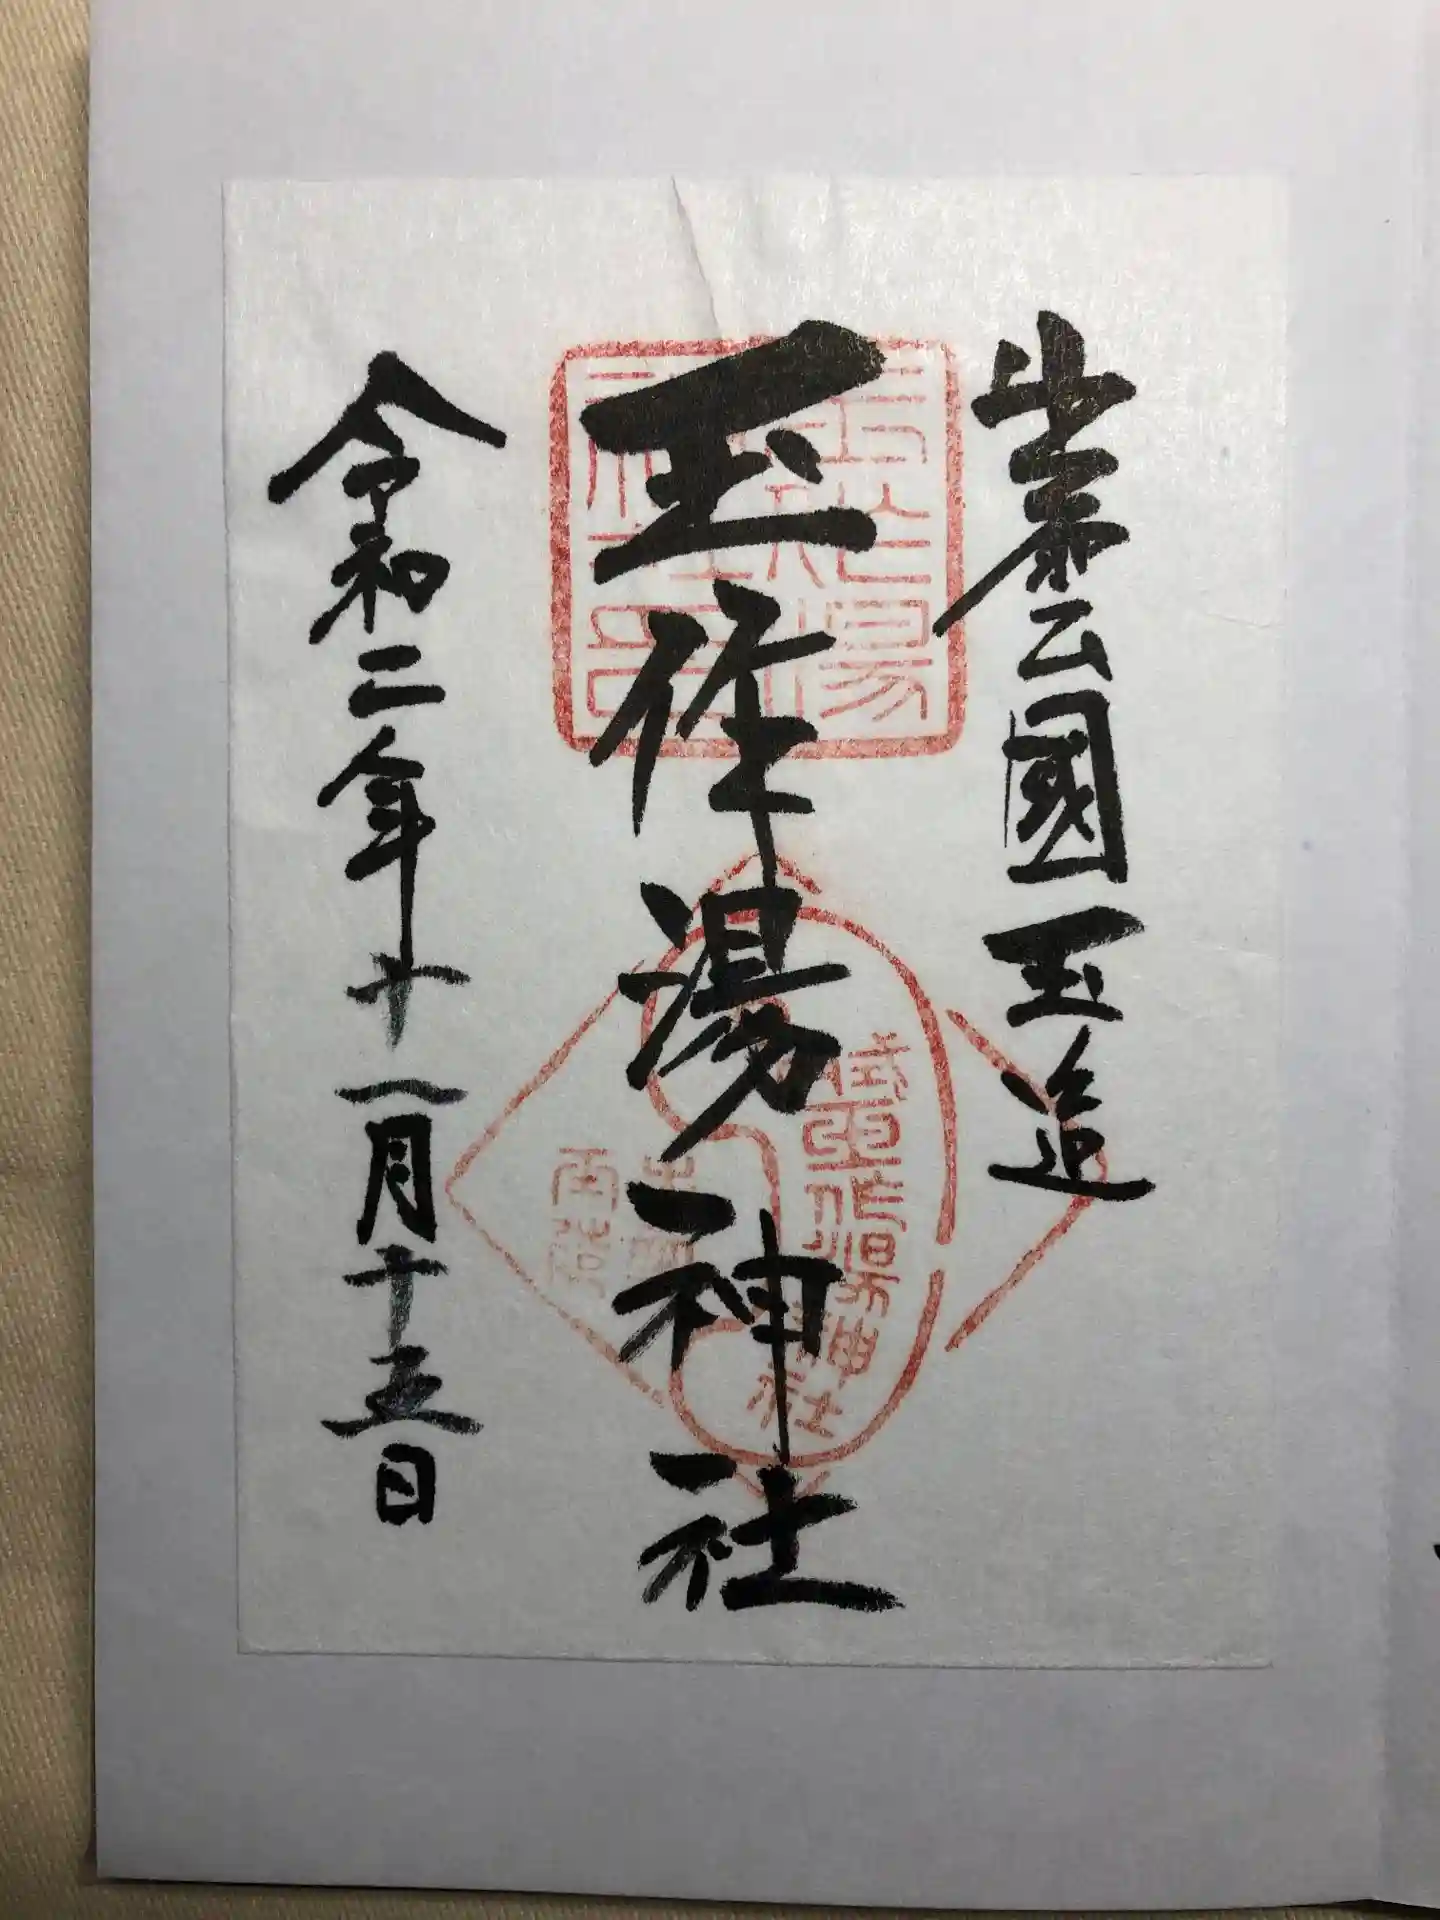 出雲國玉造
玉作湯神社
令和二年十一月十五日
玉作湯
式内玉作湯神社